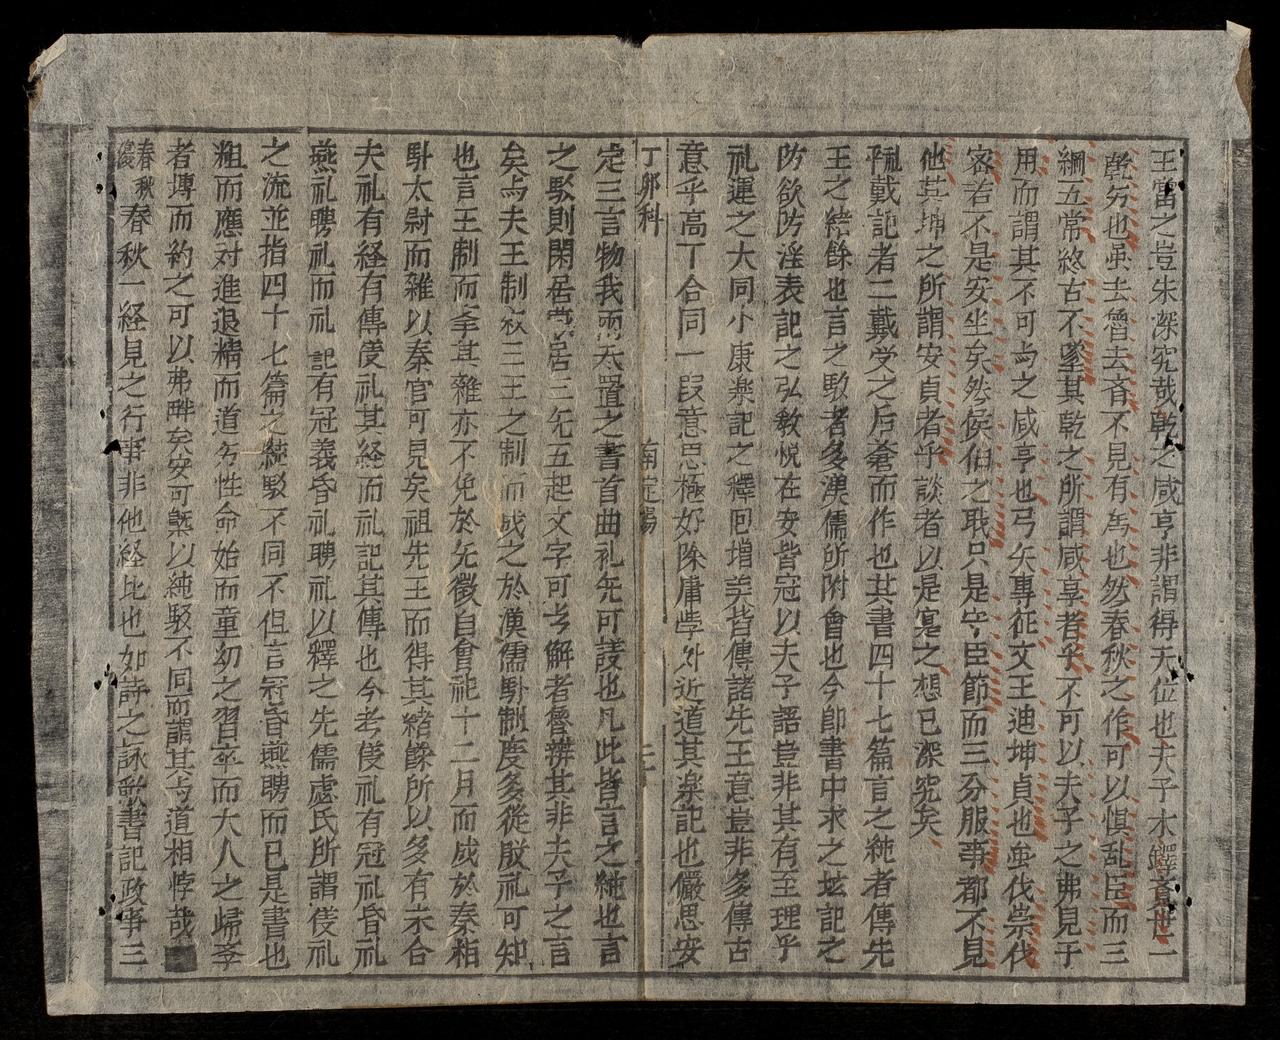 王當之豈未深究哉乾之咸亨非謂得天位也夫子木鐸斉世一
乾旁也虽去魯去斉不見有為也然春秋之作可以惧乱臣而三
綱五常終古不墜其乾之所謂咸亨者乎不可以夫子之弗見于
用而謂其不可為之咸亨也弓矢專征文王迪坤貞也虽伐崇伐
密若不是安坐矣然侯伯之职只是守臣節而三分服事都不見
他其坤之所謂安貞者乎談者以是寔之想已深究矣
礼戴記者二戴受之后蒼而作也其書四十七篇言之純者傳先
王之緒餘也言之駁者多漢儒所附會也今即書中求之坊記之
防欲防淫表記之弘教悦在安皆冠以夫子語豈非其有至理乎
礼運之大同小康楽記之釋回增美皆傳諸先王意豈非多傳古
意乎高丁合同一段意思極好除庸學外近道其楽記也儼思安
丁卯科
南定場
定三言物我而太置之書首曲礼先可謹也凡此皆言之純也言
之駁則閑居燕居三先五起文字可考解者魯辨其非夫子之言
矣為夫王制叙三王之制而成之於漢儒駁制度多從殷礼可知
也言王制而至其雜亦不免於先徵自會祀十二月而成於秦相
駙太尉而雜以秦官可見矣祖先王而得其緒餘所以多有未合
夫礼有経有傳仪礼其経而礼記其傳也今考仪礼有冠礼昏礼
燕礼聘礼而礼記有冠義昏礼聘礼以釋之先儒處氏所謂仪礼
之流並指四十七篇之純駁不同不但言冠昏燕聘而已是書也
粗而應対進退精而道为性命始而童幼之習卒而大人之歸孝
者博而約之可以弗畔矣安可槩以純駁不同而謂其為道相悖哉
春秋春秋一経見之行事非他経比也如詩之詠歌書記政事三